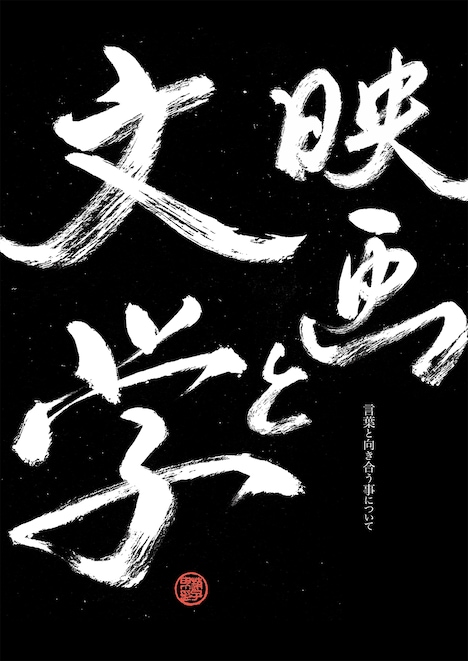 映画と
文学
言葉と向き合う事について